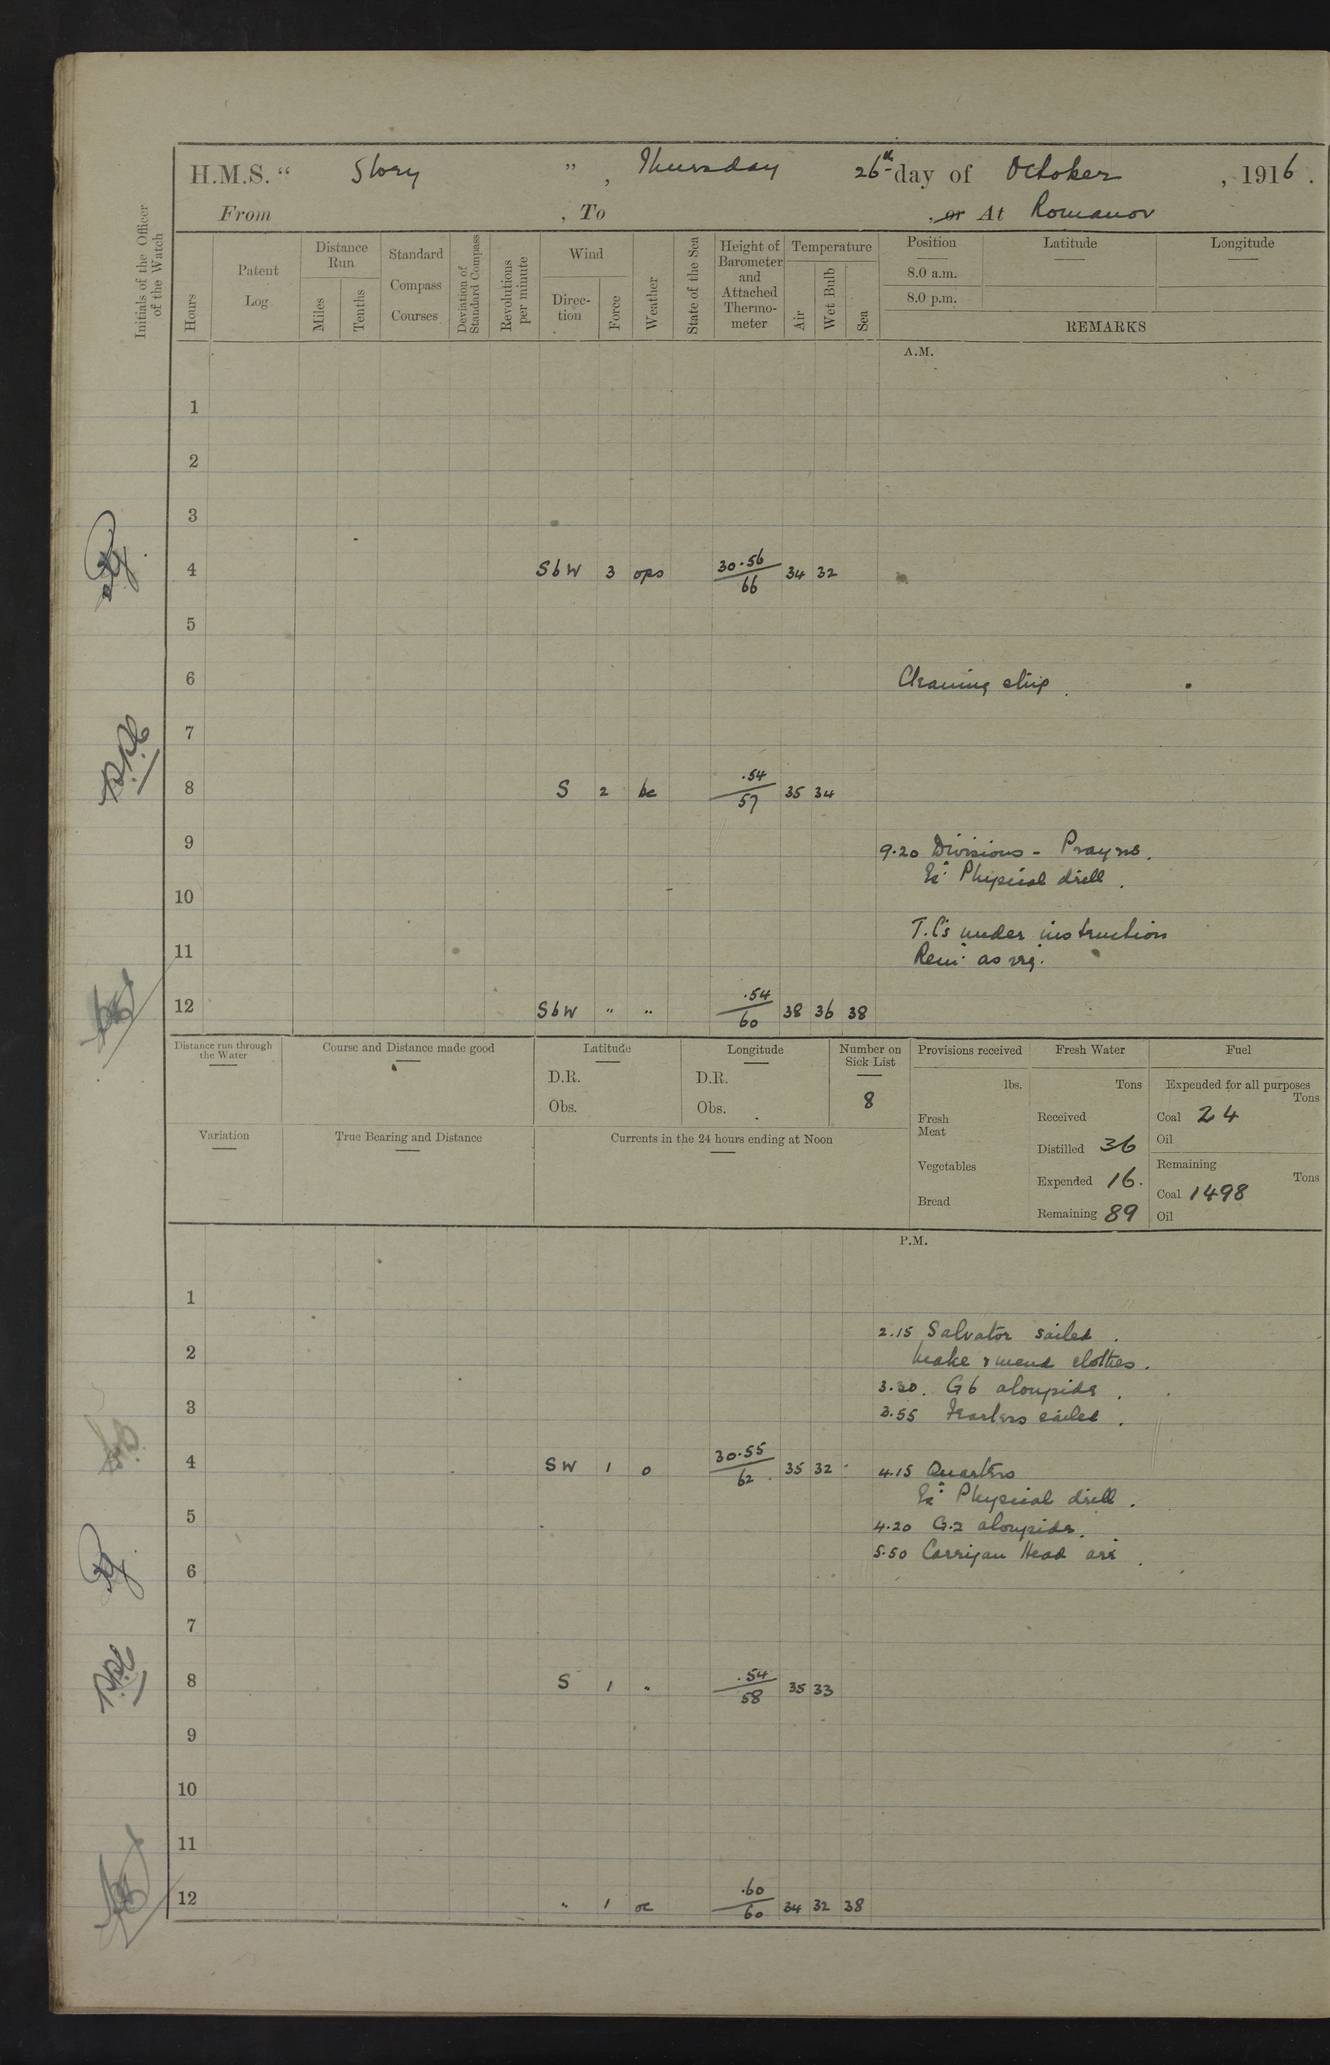 H.M.S. “ Glory ” , Thursday 26th day of October , 1916 .
From , To , or At Romanov
Initials of the Officer of the Watch
Hours
Patent Log
Distance Run
Miles
Tenths
Standard Compass Courses
Deviation of Standard Compass
Revolutions per minute
Wind
Direc-tion
Force
Weather
State of the Sea
Height of Barometer and Attached Thermo-meter
Temperature
Air
Wet Bulb
Sea
Position Latitude Longitude
8.0 a.m.
8.0 p.m.
REMARKS
A.M.
1
2
3
4 SbW 3 ops 30.56/66 34 32
5
6 Cleaning ship .
7
8 S 2 bc .54/57 35 34
9 9.20 Divisions - Prayers.
Ex: Physical drill .
10
T.C's under instruction
11 Rem: as req:
12 SbW " " .54/60 38 36 38
Distance run through the Water
Course and Distance made good
Latitude
D.R.
Obs.
Longitude
D.R.
Obs.
Number on Sick List
8
Provisions received
lbs.
Fresh Meat
Vegetables
Bread
Fresh Water
Tons
Received
Distilled 36
Expended 16.
Remaining 89
Fuel
Expended for all purposes
Tons
Coal 24
Oil
Remaining
Tons
Coal 1498
Oil
Variation
True Bearing and Distance
Currents in the 24 hours ending at Noon
P.M.
1
2.15 Salvator sailed .
2 Make & mend clothes .
3.20. G6 alongside .
3 3.55 sailed .
4 SW 1 o 30.55/62 35 32 4.15 Quarters
Ex: Physical drill .
5 4.20 G.2 alongside.
5.50 Carrigan Head arr .
6
7
8 S 1 " .54/58 35 33
9
10
11
12 " 1 oc .60/60 34 32 38